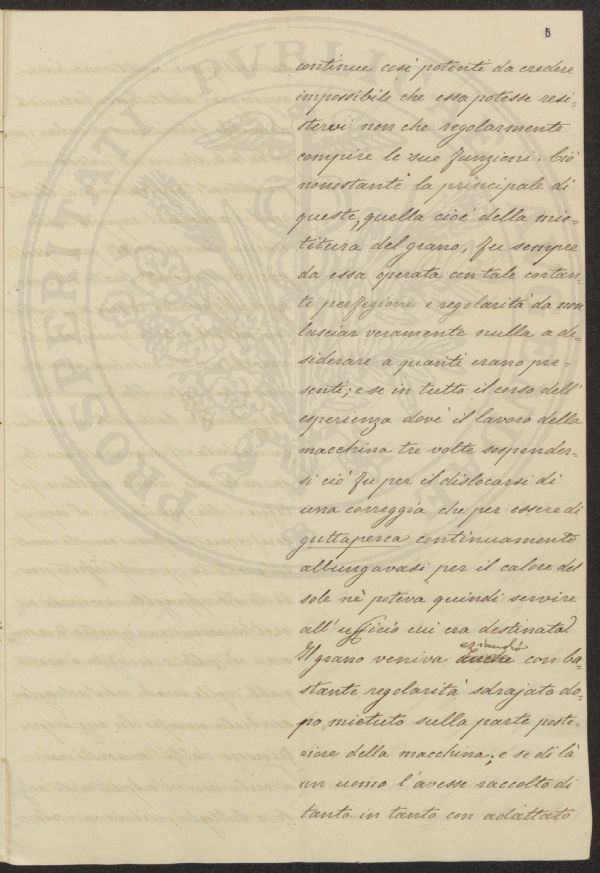 5
continue così potenti da credere
impossibile che essa potesse resi-
stervi non che regolarmente
compire le sue funzioni. Ciò
nonostante la principale di
queste, quella cioè della mie-
titura del grano, fu sempre
da essa operata con tale costan-
te perfezione e regolarità da non
lasciar veramente nulla a de-
siderare a quanti erano pre-
senti; e se in tutto il corso dell'
esperienza dovè il lavoro della
macchina tre volte sospender-
si ciò fu per il dislocarsi di
una correggia che per essere di
guttaperca continuamente
allungavasi per il calore del
sole nè poteva quindi servire
all'ufficio cui era destinata.
Il grano veniva anche eziandio con ba-
stante regolarità sdrajato do-
po mietuto sulla parte poste-
riore della macchina; e se di là
un uomo l'avesse raccolto di
tanto in tanto con adattato